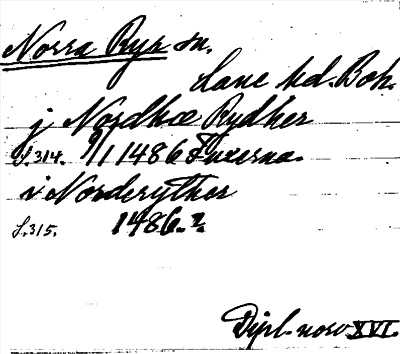 Norra Ryr sn.
Lane hd. Boh.
j Nordhæ Rydher
S.314. 9/1 1486 Tuxerna.
i Norderyther
S.315. 1486.
Dipl. norv XVI.